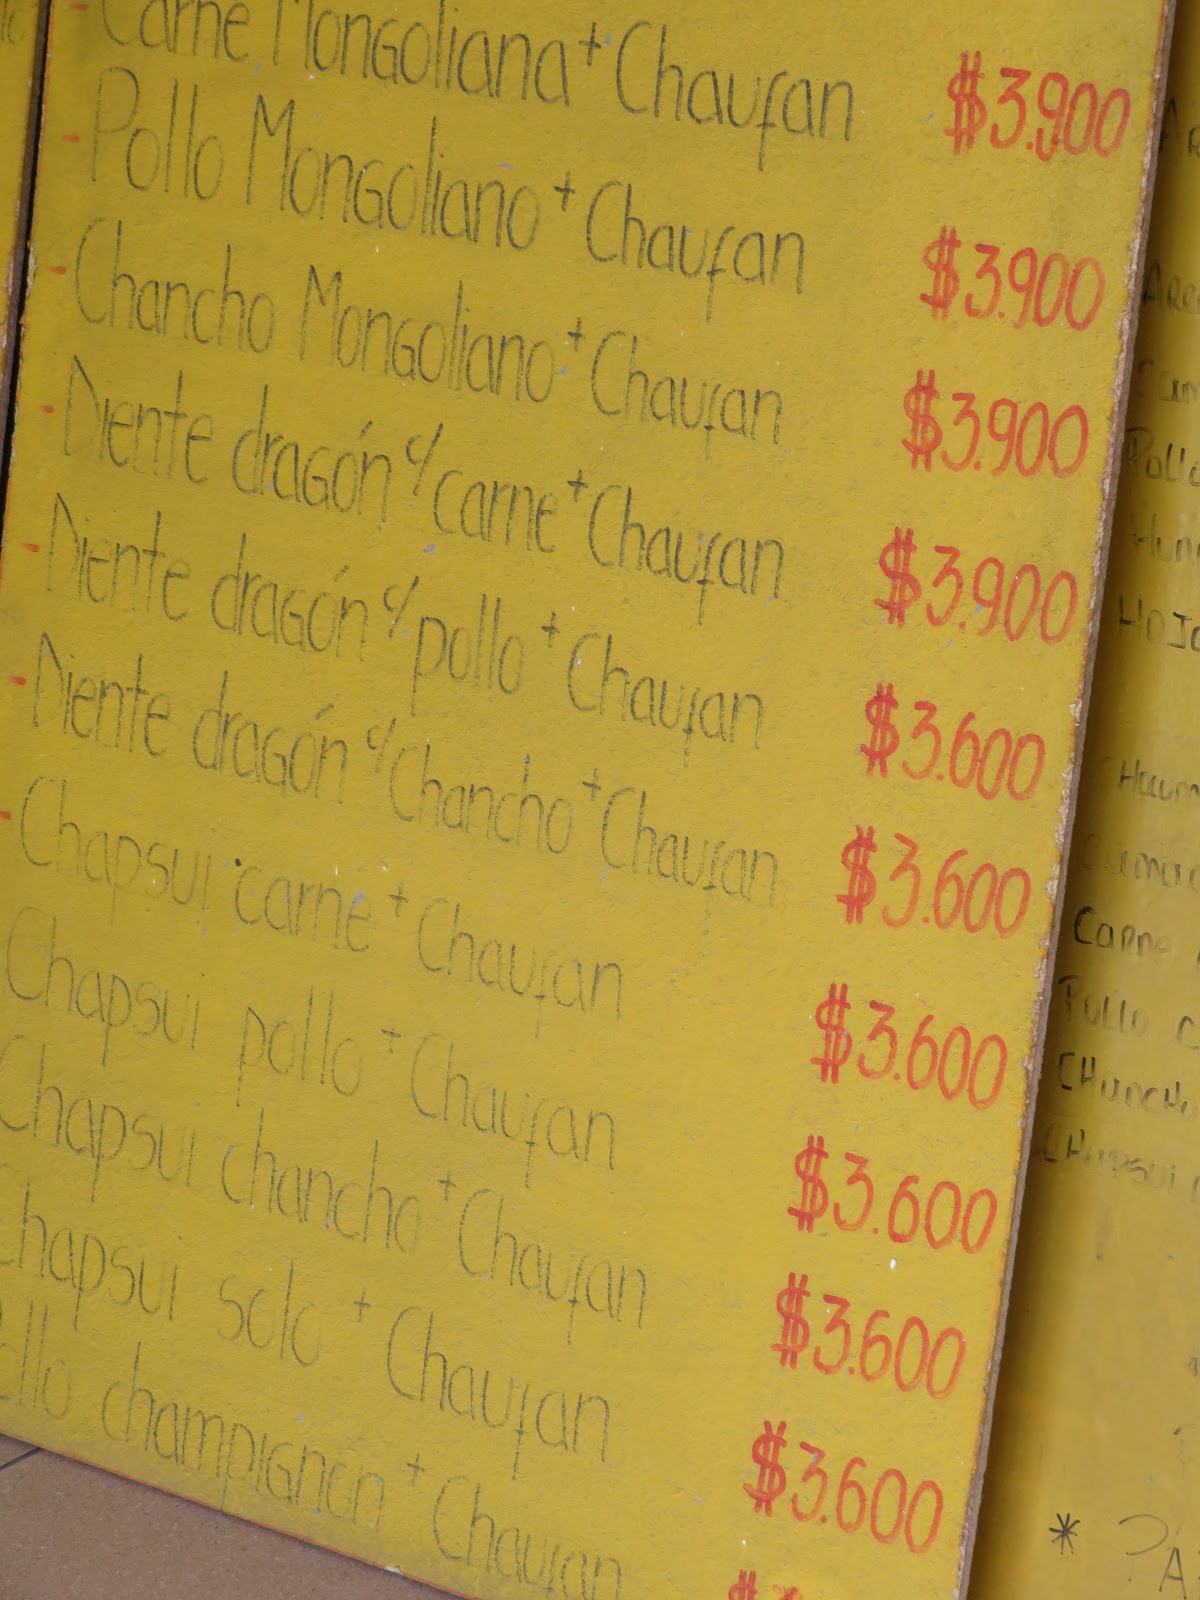 - Carne Mongoliana + Chaufan $3.900
- Pollo Mongoliano + Chaufan $3.900
- Chancho Mongoliano + Chaufan $3.900
- Diente dragón c/ carne + Chaufan $3.900
- Diente dragón c/ pollo + Chaufan $3.600
- Diente dragón c/ Chancho + Chaufan $3.600
- Chapsui carne + Chaufan $3.600
Chapsui pollo + Chaufan $3.600
Chapsui chancho + Chaufan $3.600
Chapsui solo + Chaufan $3.600
champignon + Chaufan $
Carne
Pollo C
CHapsui
*